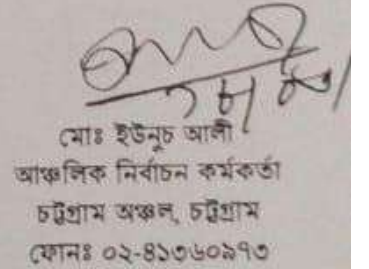 মোঃ ইউনুচ আলী
আঞ্চলিক নির্বাচন কর্মকর্তা
চট্টগ্রাম অঞ্চল, চট্টগ্রাম
ফোনঃ ০২-৪১৩৬০৯৭০